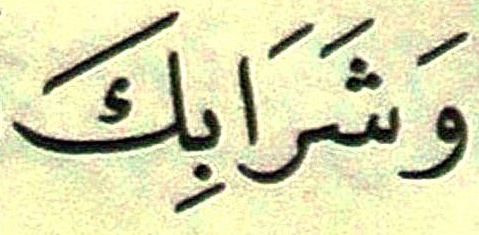 وَشَرَابِكَ